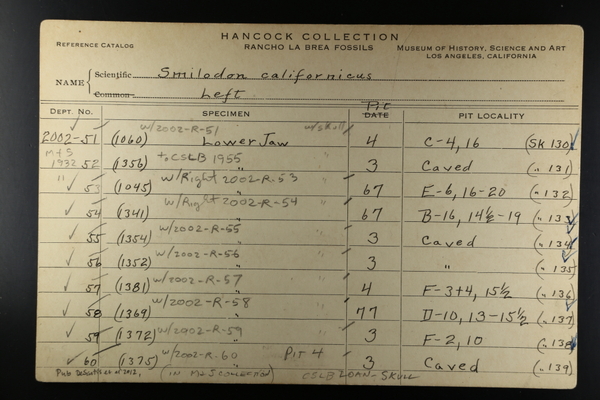 HANCOCK COLLECTION
REFERENCE CATALOG RANCHO LA BREA FOSSILS MUSEUM OF HISTORY, SCIENCE AND ART
LOS ANGELES, CALIFORNIA
NAME Scientific Smilodon californicus
Common Left
DEPT. NO. SPECIMEN Pit DATE PIT LOCALITY
w/2002-R-51 w/skull
2002-51 (1060) Lower Jaw 4 C-4, 16 (SK 130)
M+S 1932 52 (1356) to CSLB 1955 " 3 Caved (" 131)
" 53 (1045) w/Right 2002-R-53 " 67 E-6, 16-20 (" 132)
54 (1341) w/Right 2002-R-54 " 67 B-16, 14½-19 (" 133)
55 (1354) w/2002-R-55 " 3 Caved (" 134)
56 (1352) w/2002-R-56 " 3 " (" 135)
57 (1381) w/2002-R-57 " 4 F-3+4, 15½ (" 136)
58 (1369) w/2002-R-58 " 77 D-10, 13-15½ (" 137)
59 (1372) w/2002-R-59 " 3 F-2, 10 (" 138)
60 (1375) w/2002-R-60 " Pit 4 3 Caved (" 139)
Pub. DeSantis et al 2012, (IN M+S COLLECTION) CSLB LOAN-SKULL